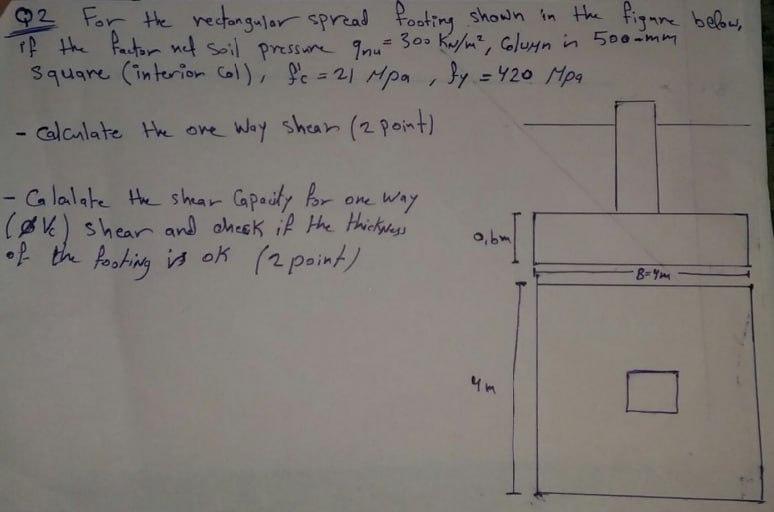 Q2 For the rectangular spread footing shown in the figure below,
if the factor net soil pressure qnu = 300 KN/m², Column is 500-mm
square (interior Col), f'c = 21 Mpa , fy = 420 Mpa
- Calculate the one way shear (2 point)
- Calculate the shear Capacity for one way
(ØVc) shear and check if the thickness
of the footing is ok (2 point)
0,6m
B=4m
4m